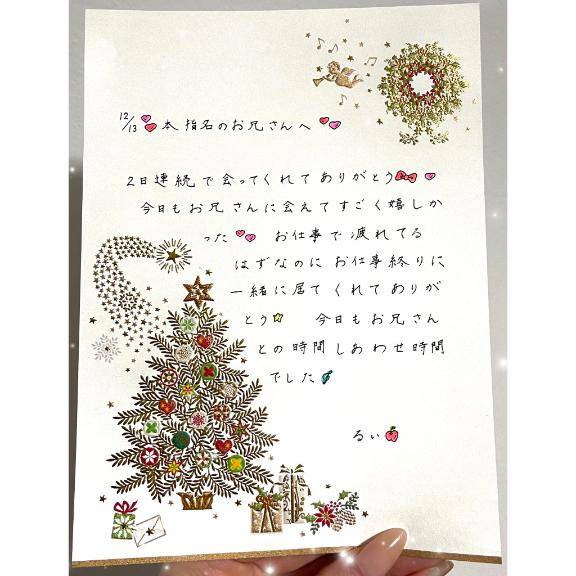 12/13 本指名のお兄さんへ
2日連続で会ってくれてありがとう
今日もお兄さんに会えてすごく嬉しか
った お仕事で疲れてる
はずなのにお仕事終りに
一緒に居てくれてありが
とう 今日もお兄さん
との時間しあわせ時間
でした
るい